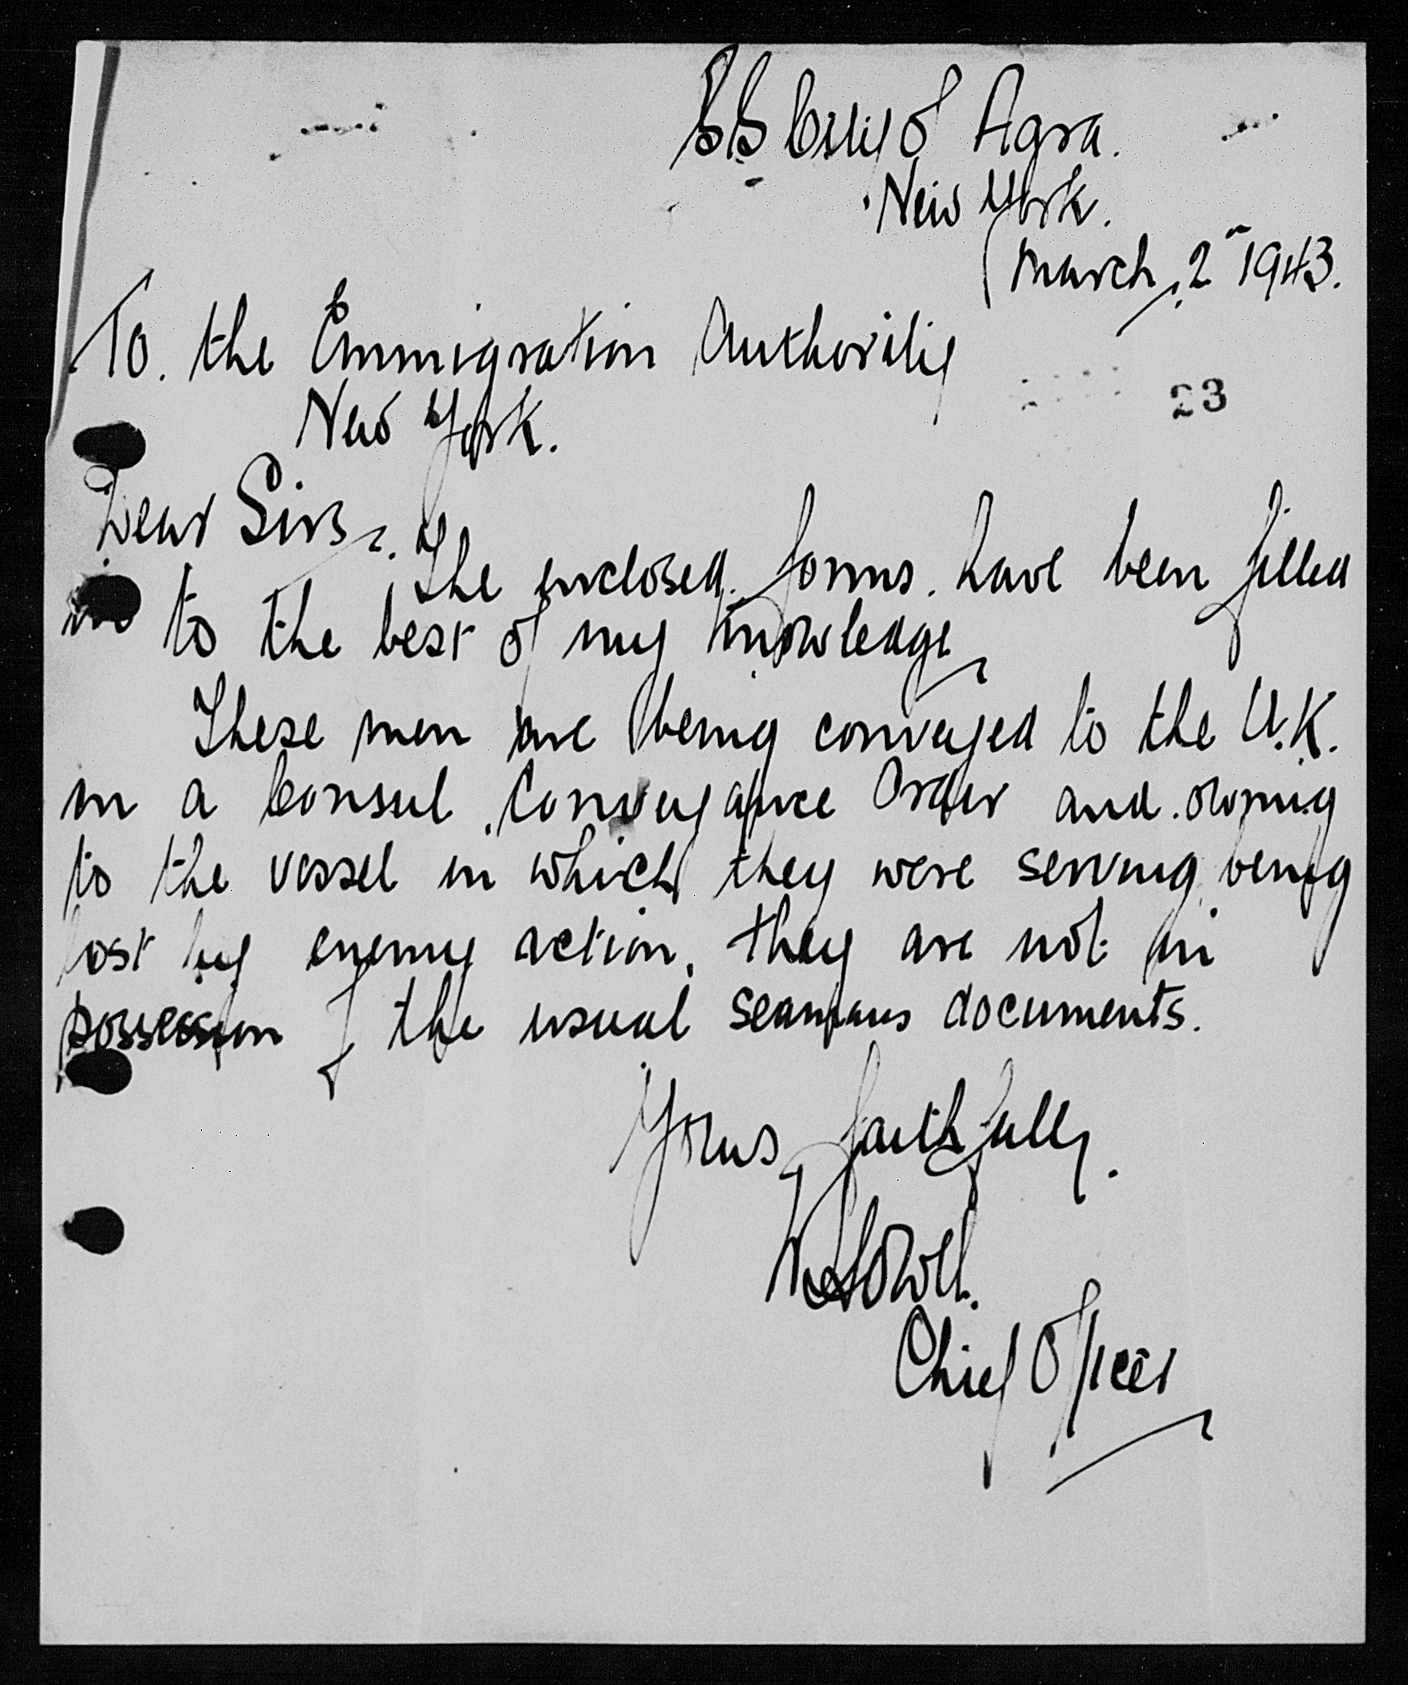 SS City of Agra.
New York.
March, 2nd 1943.
To. the Emmigration Authority
23
New York.
Dear Sirs,
The enclosed forms. have been filled
in to the best of my knowledge,
These men are being conveyed to the U.K.
in a Consul Conveyance Order and owing
to the vessel in which they were serving being
lost by enemy action, they are not in
possession of the usual seamans documents.
Yours faithfully.
Chief Officer